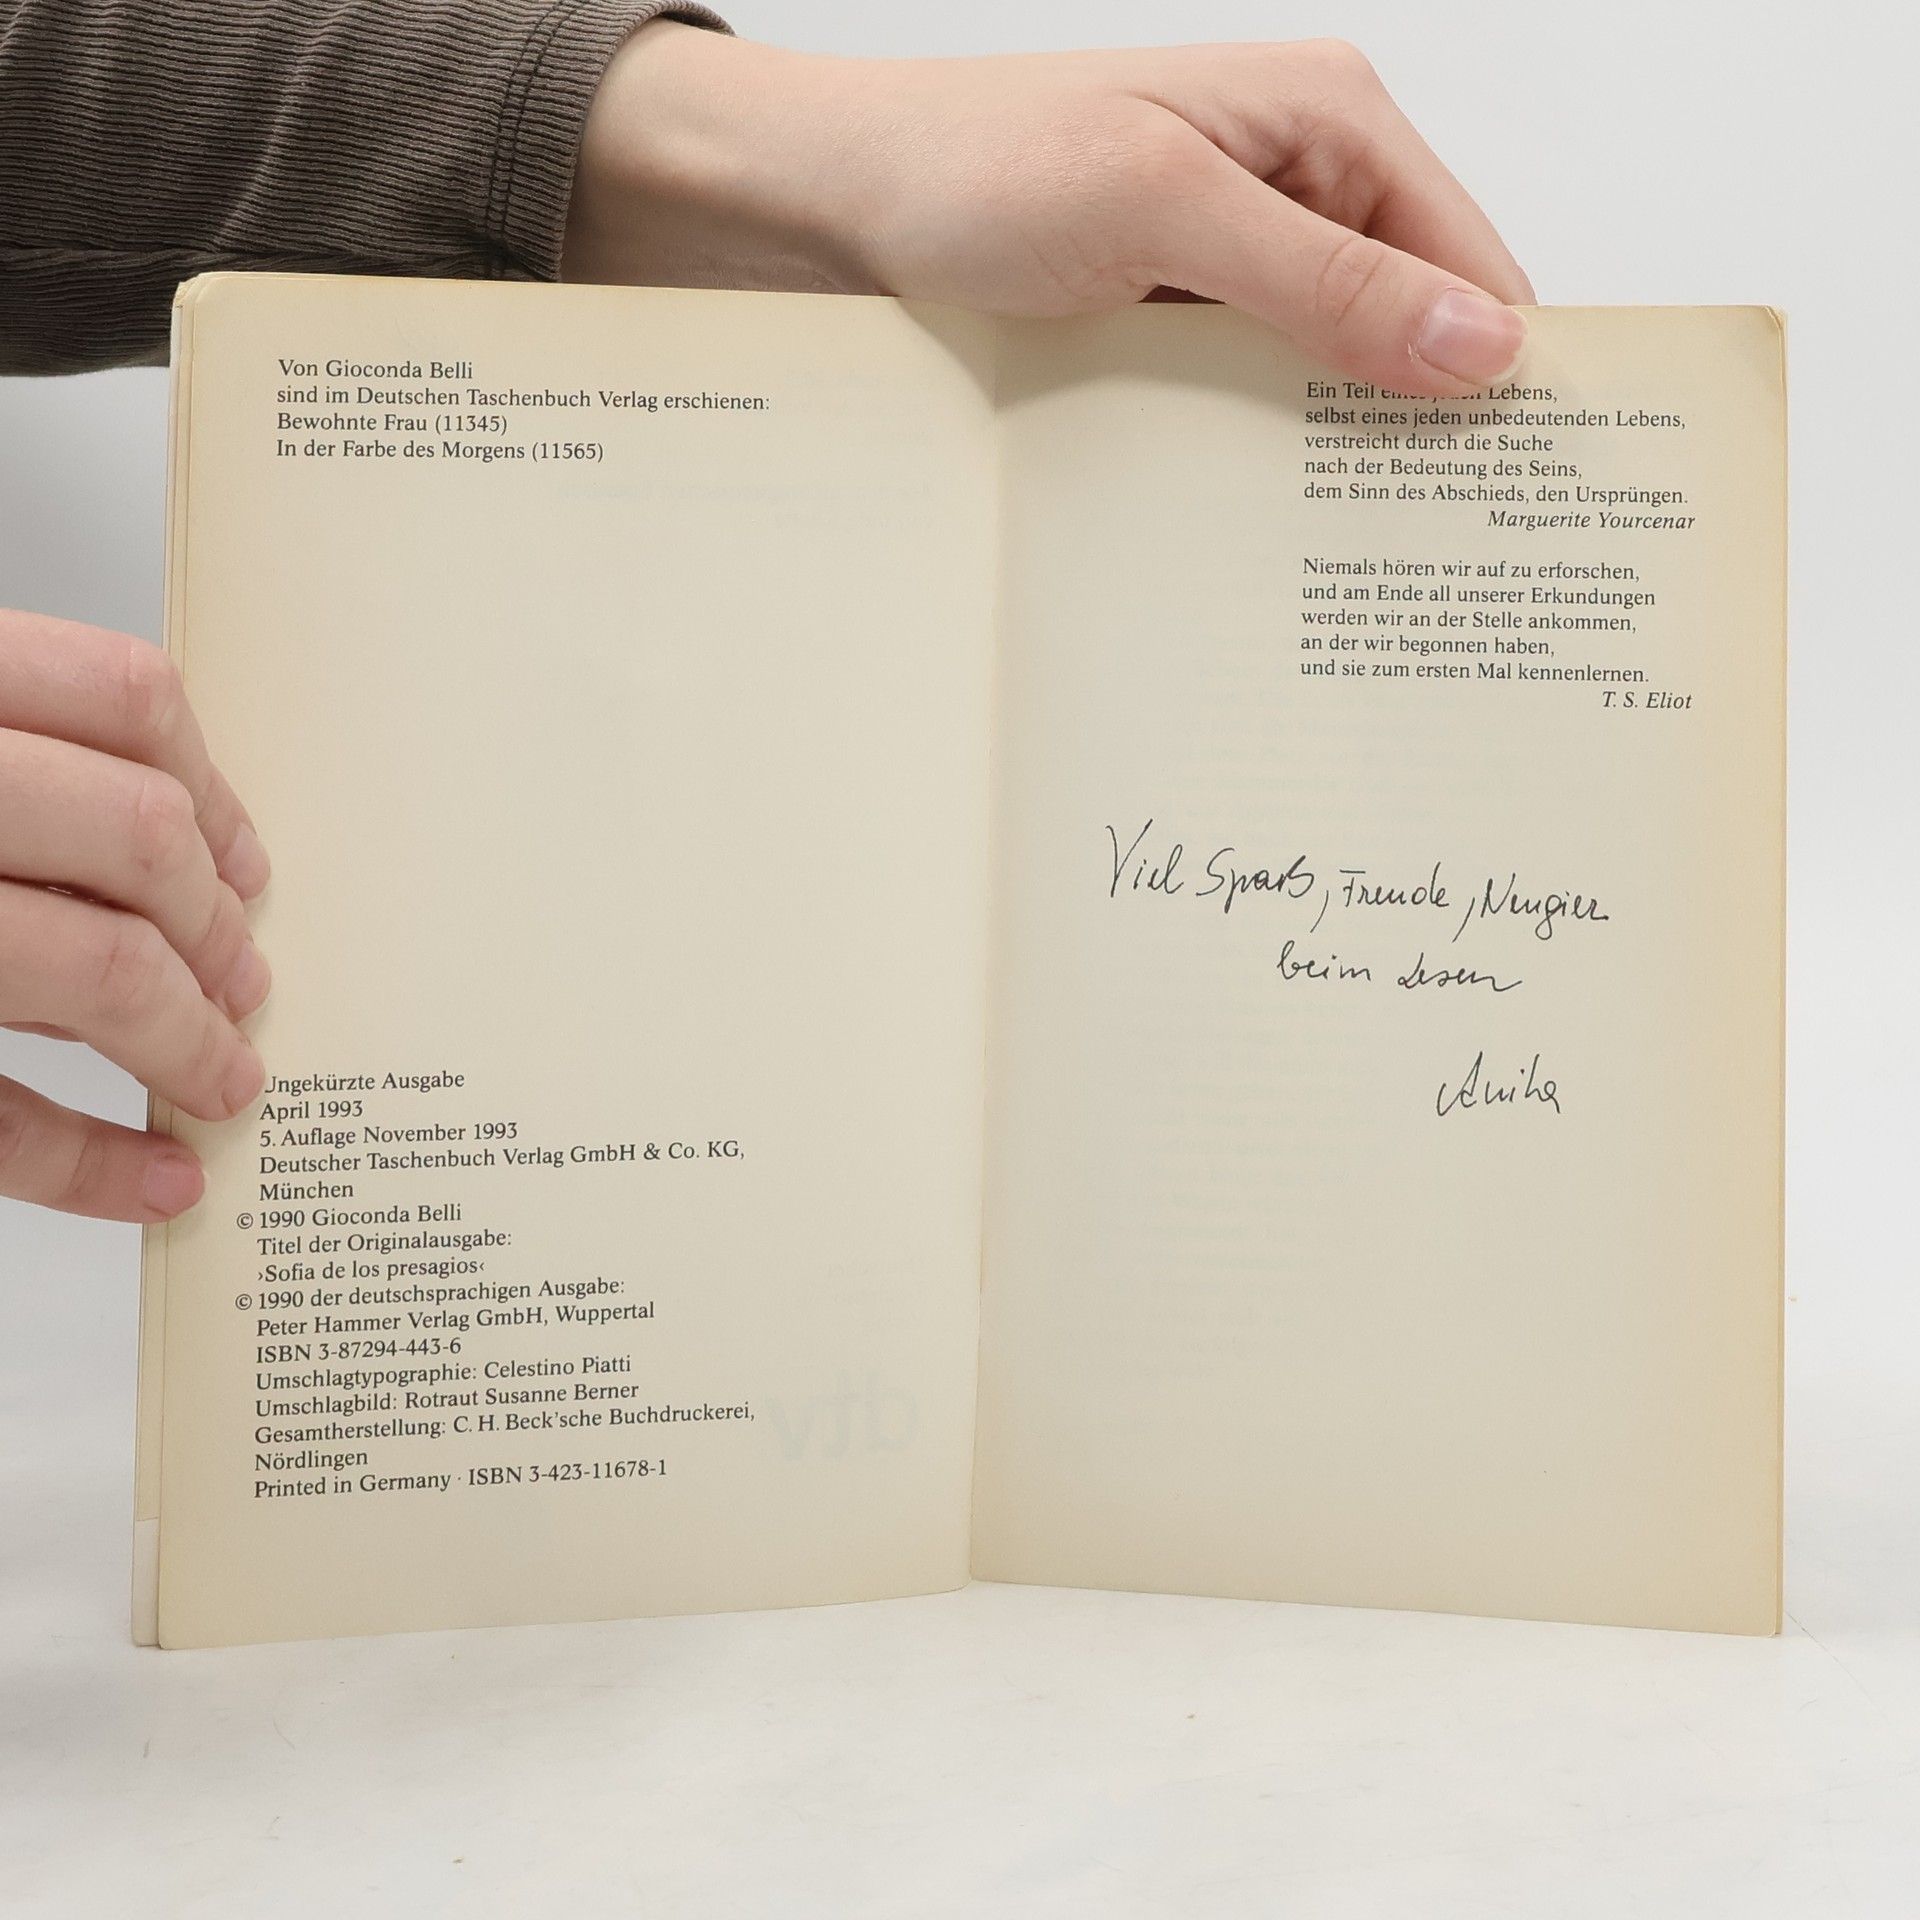 Von Gioconda Belli
sind im Deutschen Taschenbuch Verlag erschienen:
Bewohnte Frau (11345)
In der Farbe des Morgens (11565)
Ungekürzte Ausgabe
April 1993
5. Auflage November 1993
Deutscher Taschenbuch Verlag GmbH & Co. KG,
München
© 1990 Gioconda Belli
Titel der Originalausgabe:
›Sofia de los presagios‹
© 1990 der deutschsprachigen Ausgabe:
Peter Hammer Verlag GmbH, Wuppertal
ISBN 3-87294-443-6
Umschlagtypographie: Celestino Piatti
Umschlagbild: Rotraut Susanne Berner
Gesamtherstellung: C. H. Beck'sche Buchdruckerei,
Nördlingen
Printed in Germany · ISBN 3-423-11678-1
Ein Teil Lebens,
selbst eines jeden unbedeutenden Lebens,
verstreicht durch die Suche
nach der Bedeutung des Seins,
dem Sinn des Abschieds, den Ursprüngen.
Marguerite Yourcenar
Niemals hören wir auf zu erforschen,
und am Ende all unserer Erkundungen
werden wir an der Stelle ankommen,
an der wir begonnen haben,
und sie zum ersten Mal kennenlernen.
T. S. Eliot
Viel Spaß, Freude, Neugier
beim Lesen
Anika